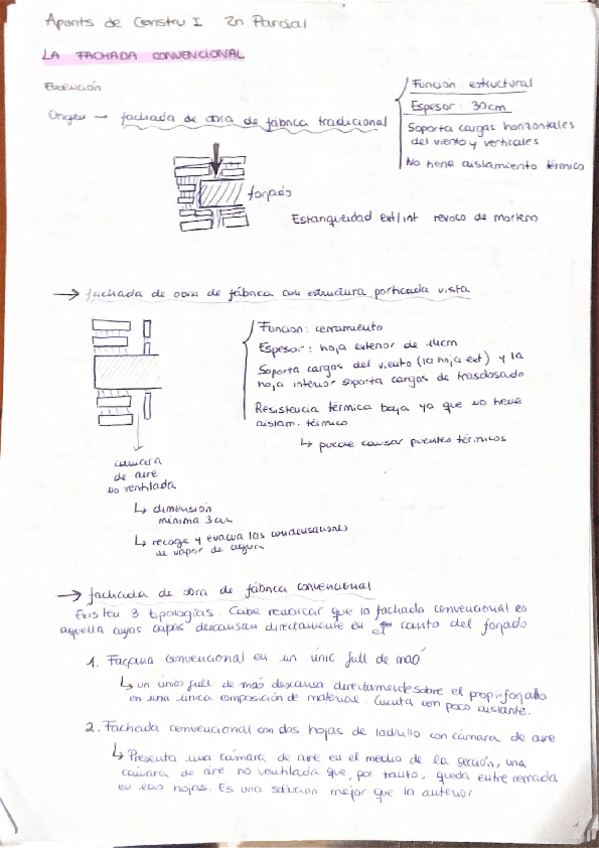 Apunts de Constru I 2n Parcial
LA FACHADA CONVENCIONAL
Evolución
Origen → fachada de obra de fábrica tradicional
Función: estructural
Espesor: 30cm
Soporta cargas horizontales
del viento y verticales
No tiene aislamiento térmico
forjado
Estanqueidad ext/int revoco de mortero
→ fachada de obra de fábrica con estructura porticada vista
Funcion: cerramiento
Espesor: hoja exterior de 14cm
Soporta cargas del viento (la hoja ext) y la
hoja interior soporta cargas de trasdosado
Resistencia térmica baja ya que no tiene
aislam. térmico
↳ puede causar puentes térmicos
cámara
de aire
no ventilada
↳ dimensión
mínima 3cm
↳ recoge y evacua las condensaciones
de vapor de agua
→ fachada de obra de fábrica convencional
Existen 3 tipologías. Cabe remarcar que la fachada convencional es
aquella cuyas capas descansan directamente en el canto del forjado
1. Façana convencional en un únic full de maó
↳ un único full de maó descansa directamente sobre el propi forjado
en una única composición de material. Cuenta con poco aislante.
2. Fachada convencional con dos hojas de ladrillo con cámara de aire
↳ Presenta una cámara de aire en el medio de la sección, una
cámara de aire no ventilada que, por tanto, queda entre cerrada
en las hojas. Es una solucion mejor que la anterior
1